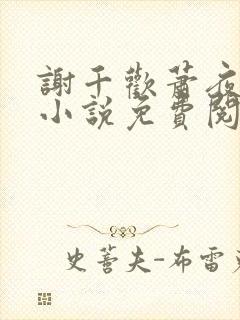 謝千歡蕭夜
小說免費閱
史蒂夫-布雷